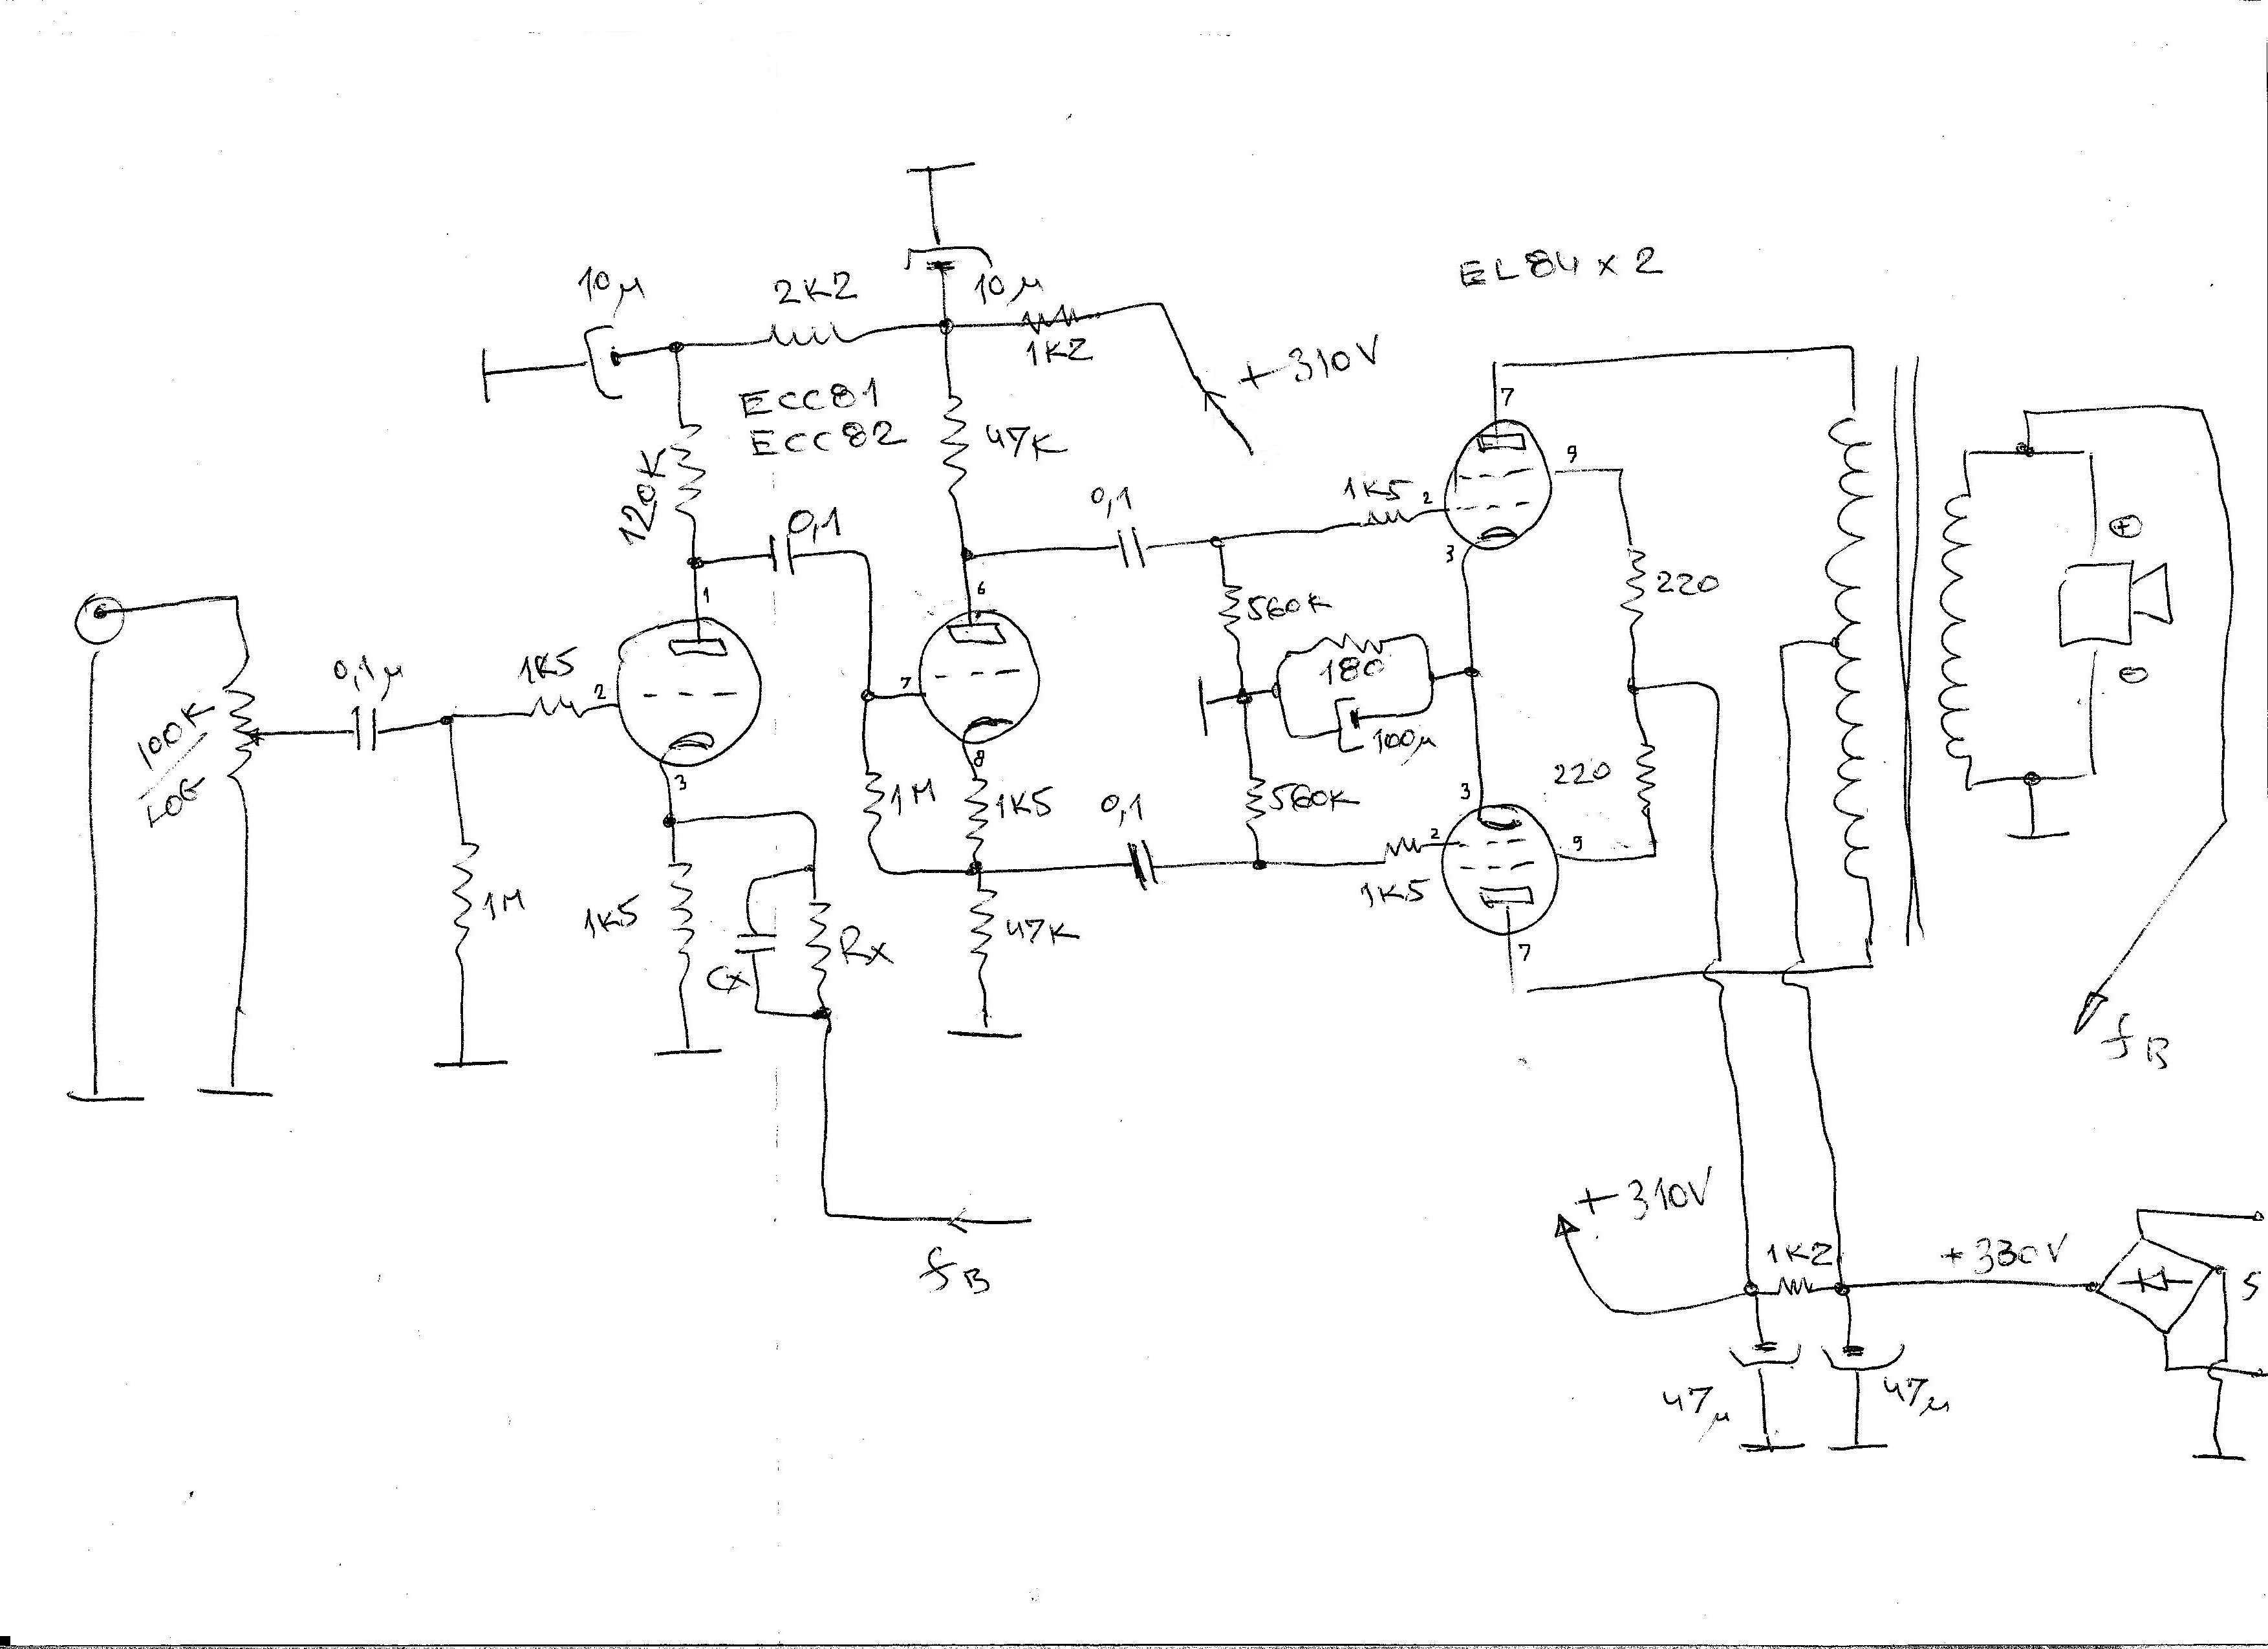 10μ
2K2
10μ
1K2
+310V
EL84 x 2
ECC81
ECC82
120K
47K
0,1
0,1
1K5
2
7
9
3
220
560K
180
100μ
560K
220
1
6
100K
LOG
0,1μ
1K5
2
3
7
8
1M
1K5
0,1
3
2
9
1K5
7
1M
1K5
Cx
Rx
47K
fB
+
-
fB
+310V
1K2
+330V
47μ
47μ